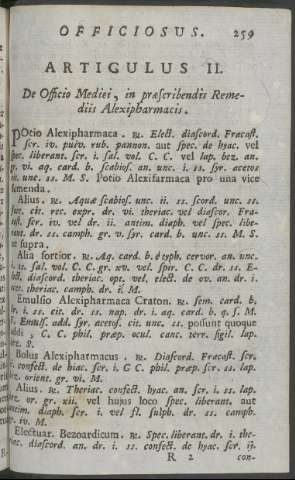 OFFICIOSUS. 259
ARTIGULUS II.
De Officio Medici, in præscribendis Reme-
diis Alexipharmacis.
POtio Alexipharmaca. ℞. Elect. diascord. Fracast.
scr. iv. pulv. rub. pannon. aut spec. de hyac. vel
spec. liberant. scr. i. sal. vol. C. C. vel lap. bez. an.
gr. vi. aq. card. b. scabios. an. unc. i. ss. syr. acetos
unc. ss. M. S. Potio Alexifarmaca pro una vice
sumenda.
Alius. ℞. Aquæ scabios. unc. ii. ss. scord. unc. ss.
suc. cit. rec. expr. dr. vi. theriac. vel diascor. Fra-
scr. iv. vel dr. ii. antim. diaph. vel spec. libe-
rant. dr. ss. camph. gr. v. syr. card. b. unc. ss. M. S.
supra.
Alia fortior. ℞. Aq. card. b. è typh. cervor. an. unc.
ss. sal. vol. C. C. gr. xv. vel spir. C. C. dr. ss. E-
lect. diascord. theriac. opt. vel. elect. de ov. an. dr. i.
theriac. camph. dr. i. M.
Emulsio Alexipharmaca Craton. ℞. sem. card. b.
i. ss. cit. dr. ss. nap. dr. i. aq. card. b. q. s. M.
Emuls. add. syr. acetos. cit. unc. ss. possunt quoque
addi, C. C. phil. præp. ocul. canc. terr. sigil. lap.
Bolus Alexipharmacus. ℞. Diascord. Fracast. scr.
confect. de hiac. scr. i. C C. phil. præp. scr. ss. lap.
bez. orient. gr. vi. M.
Alius. ℞. Theriac. confect. hyac. an. scr. i. ss. lap.
bez. or. gr. xii. vel hujus loco spec. liberant. aut
antim. diaph. scr. i. vel fl. sulph. dr. ss. camph.
gr. iv. M.
Electuar. Bezoardicum. ℞. Spec. liberant. dr. i. the-
riac. diascord. an. dr. i. ss. confect. de hyac. scr. ij.
R 2 con-